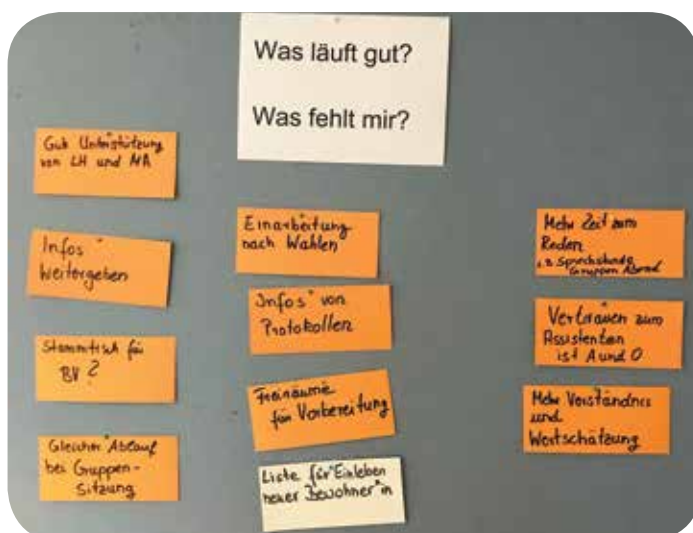 Was läuft gut?
Was fehlt mir?
Gute Unterstützung
von LH und MA
Infos
Weitergeben
Stammtisch für
BV?
Gleicher Ablauf
bei Gruppen-
Sitzung
Einarbeitung
nach Wahlen
Infos von
Protokollen
Freiräume
für Vorbereitung
Liste für Einleben
neuer Bewohner*in
Mehr Zeit zum
Reden
z.B Sprechstunde
Gruppen Abend
Vertrauen zum
Assistenten
ist A und O
Mehr Verständnis
und
Wertschätzung